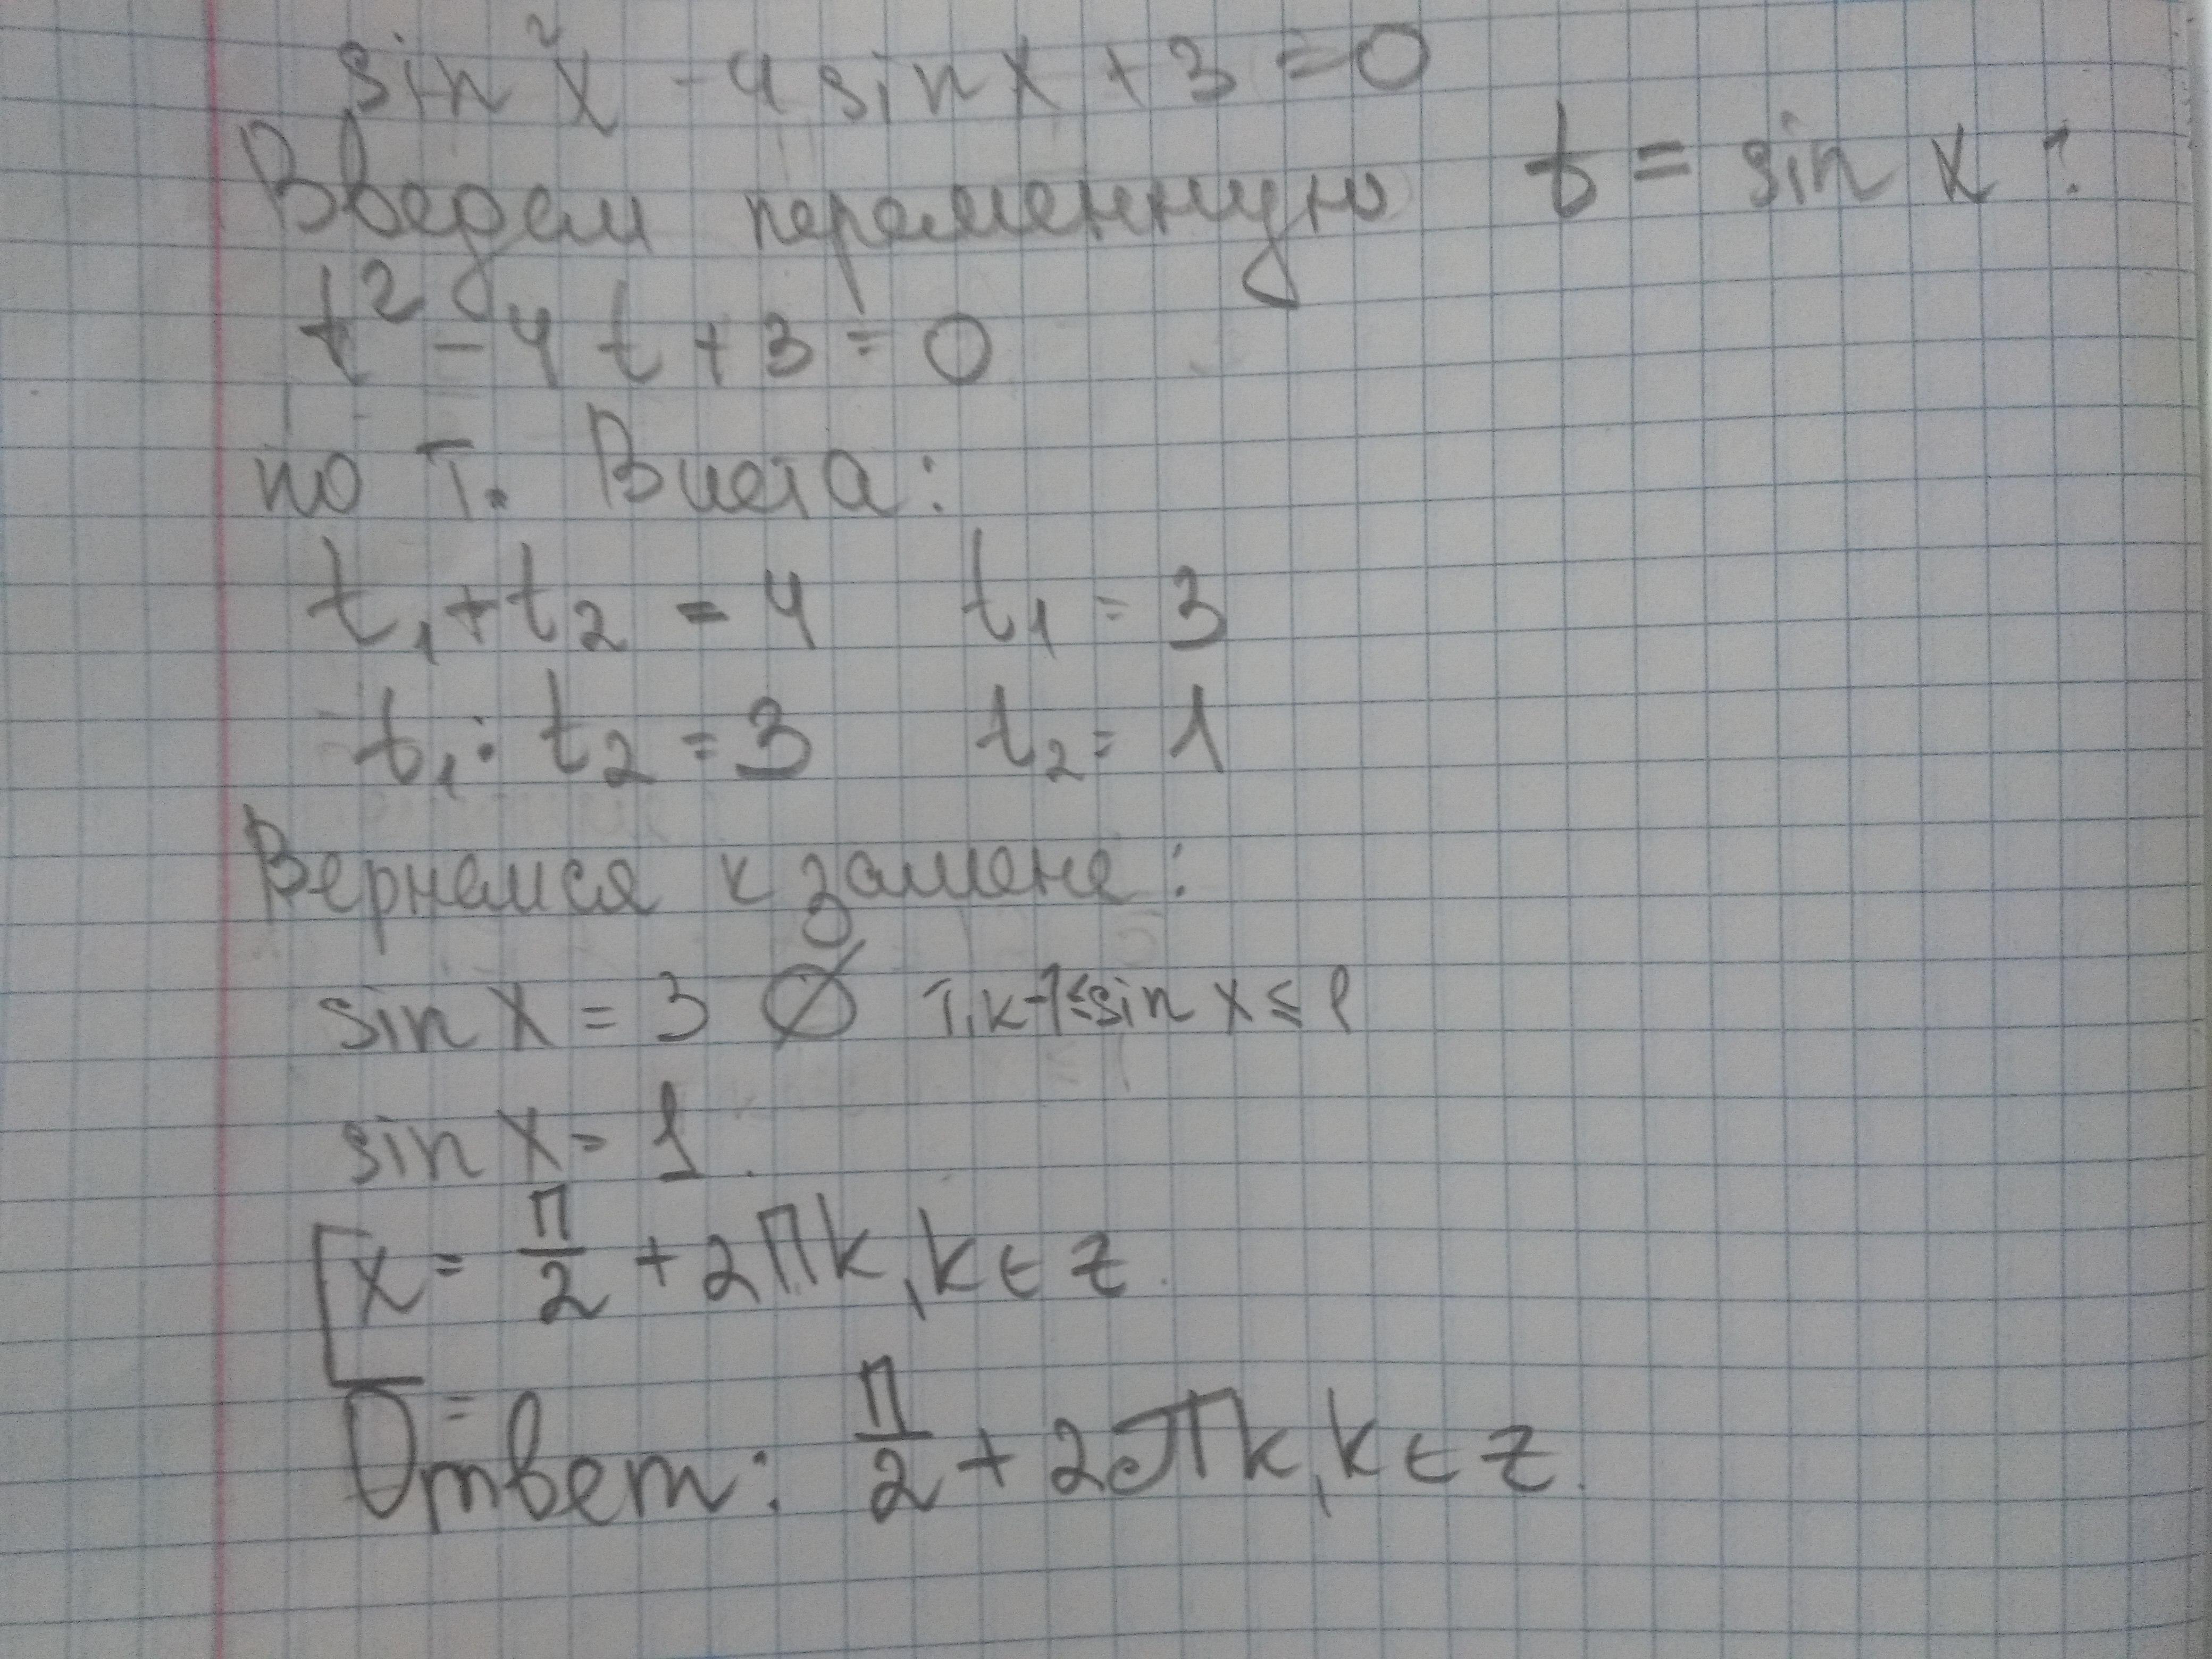 sin²x - 4 sin x + 3 = 0
Введем переменную t = sin x :
t² - 4t + 3 = 0
по т. Виета:
t₁ + t₂ = 4 t₁ = 3
t₁ · t₂ = 3 t₂ = 1
Вернемся к замене:
sin x = 3 ∅ т.к -1 ≤ sin x ≤ 1
sin x = 1.
x = π/2 + 2πk, k ∈ z.
Ответ: π/2 + 2πk, k ∈ z.